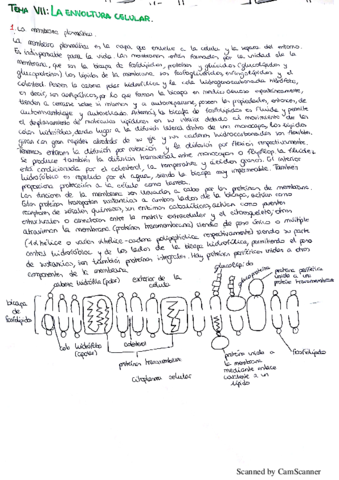 TEMA VII: LA ENVOLTURA CELULAR.
1. La membrana plasmática
La membrana plasmática es la capa que envuelve a la célula y la separa del entorno.
Es indispensable para la vida. Las membranas están formadas por la unidad de la
membrana, que son la bicapa de fosfolípidos, proteínas y glúcidos (glucolípidos y
glucoproteínas). Los lípidos de la membrana son fosfoglicéridos, esfingolípidos y el
colesterol. Poseen la cabeza polar hidrofílica y la cola hidrocarbonada hidrófoba,
es decir, son anfipáticos, por lo que forman la bicapa en medio acuoso espontáneamente,
tienden a cerrarse sobre sí mismos y a autorrepararse, poseen las propiedades, entonces, de
automontaje y autosellado. Además, la bicapa de fosfolípidos es fluida y permite
el desplazamiento de moléculas lipídicas en su
colas hidrófobas, dando lugar a la difusión lateral dentro de una monocapa. Los lípidos
giran con gran rapidez alrededor de su eje y sus cadenas hidrocarbonadas son flexibles.
Tenemos entonces la difusión por rotación y la difusión por flexión respectivamente.
Se produce también la difusión transversal entre monocapas o flip-flop. La fluidez
está condicionada por el colesterol, la temperatura y ácidos grasos. El interior
hidrofóbico es repelido por el agua, siendo la bicapa muy impermeable. También
proporciona protección a la célula como barrera.
Las funciones de la membrana son llevadas a cabo por las proteínas de membrana.
Estas proteínas transportan sustancias a ambos lados de la bicapa, actúan como
receptores de señales químicas, son enzimas catalíticas, actúan como puentes
estructurales o conectan entre la matriz extracelular y el citoesqueleto, otras
atraviesan la membrana (proteínas transmembrana) siendo de paso único o múltiple
(1 α hélice o varias α hélice - cadena polipeptídica respectivamente) siendo su parte
central hidrofóbica y de los lados de la bicapa hidrofílica, permitiendo el paso
de sustancias, son también proteínas integrales. Hay proteínas periféricas unidas a otros
componentes de la membrana.
glucolípido
glucoproteína
proteína periférica
unida a una
proteína transmembrana
cabeza hidrófila (polar)
exterior de la
célula
bicapa
de
fosfolípidos
cola hidrófoba
(apolar)
colesterol
proteínas transmembrana
citoplasma celular
proteína unida a
la membrana
mediante enlace
covalente a un
lípido
fosfolípido
Scanned by CamScanner